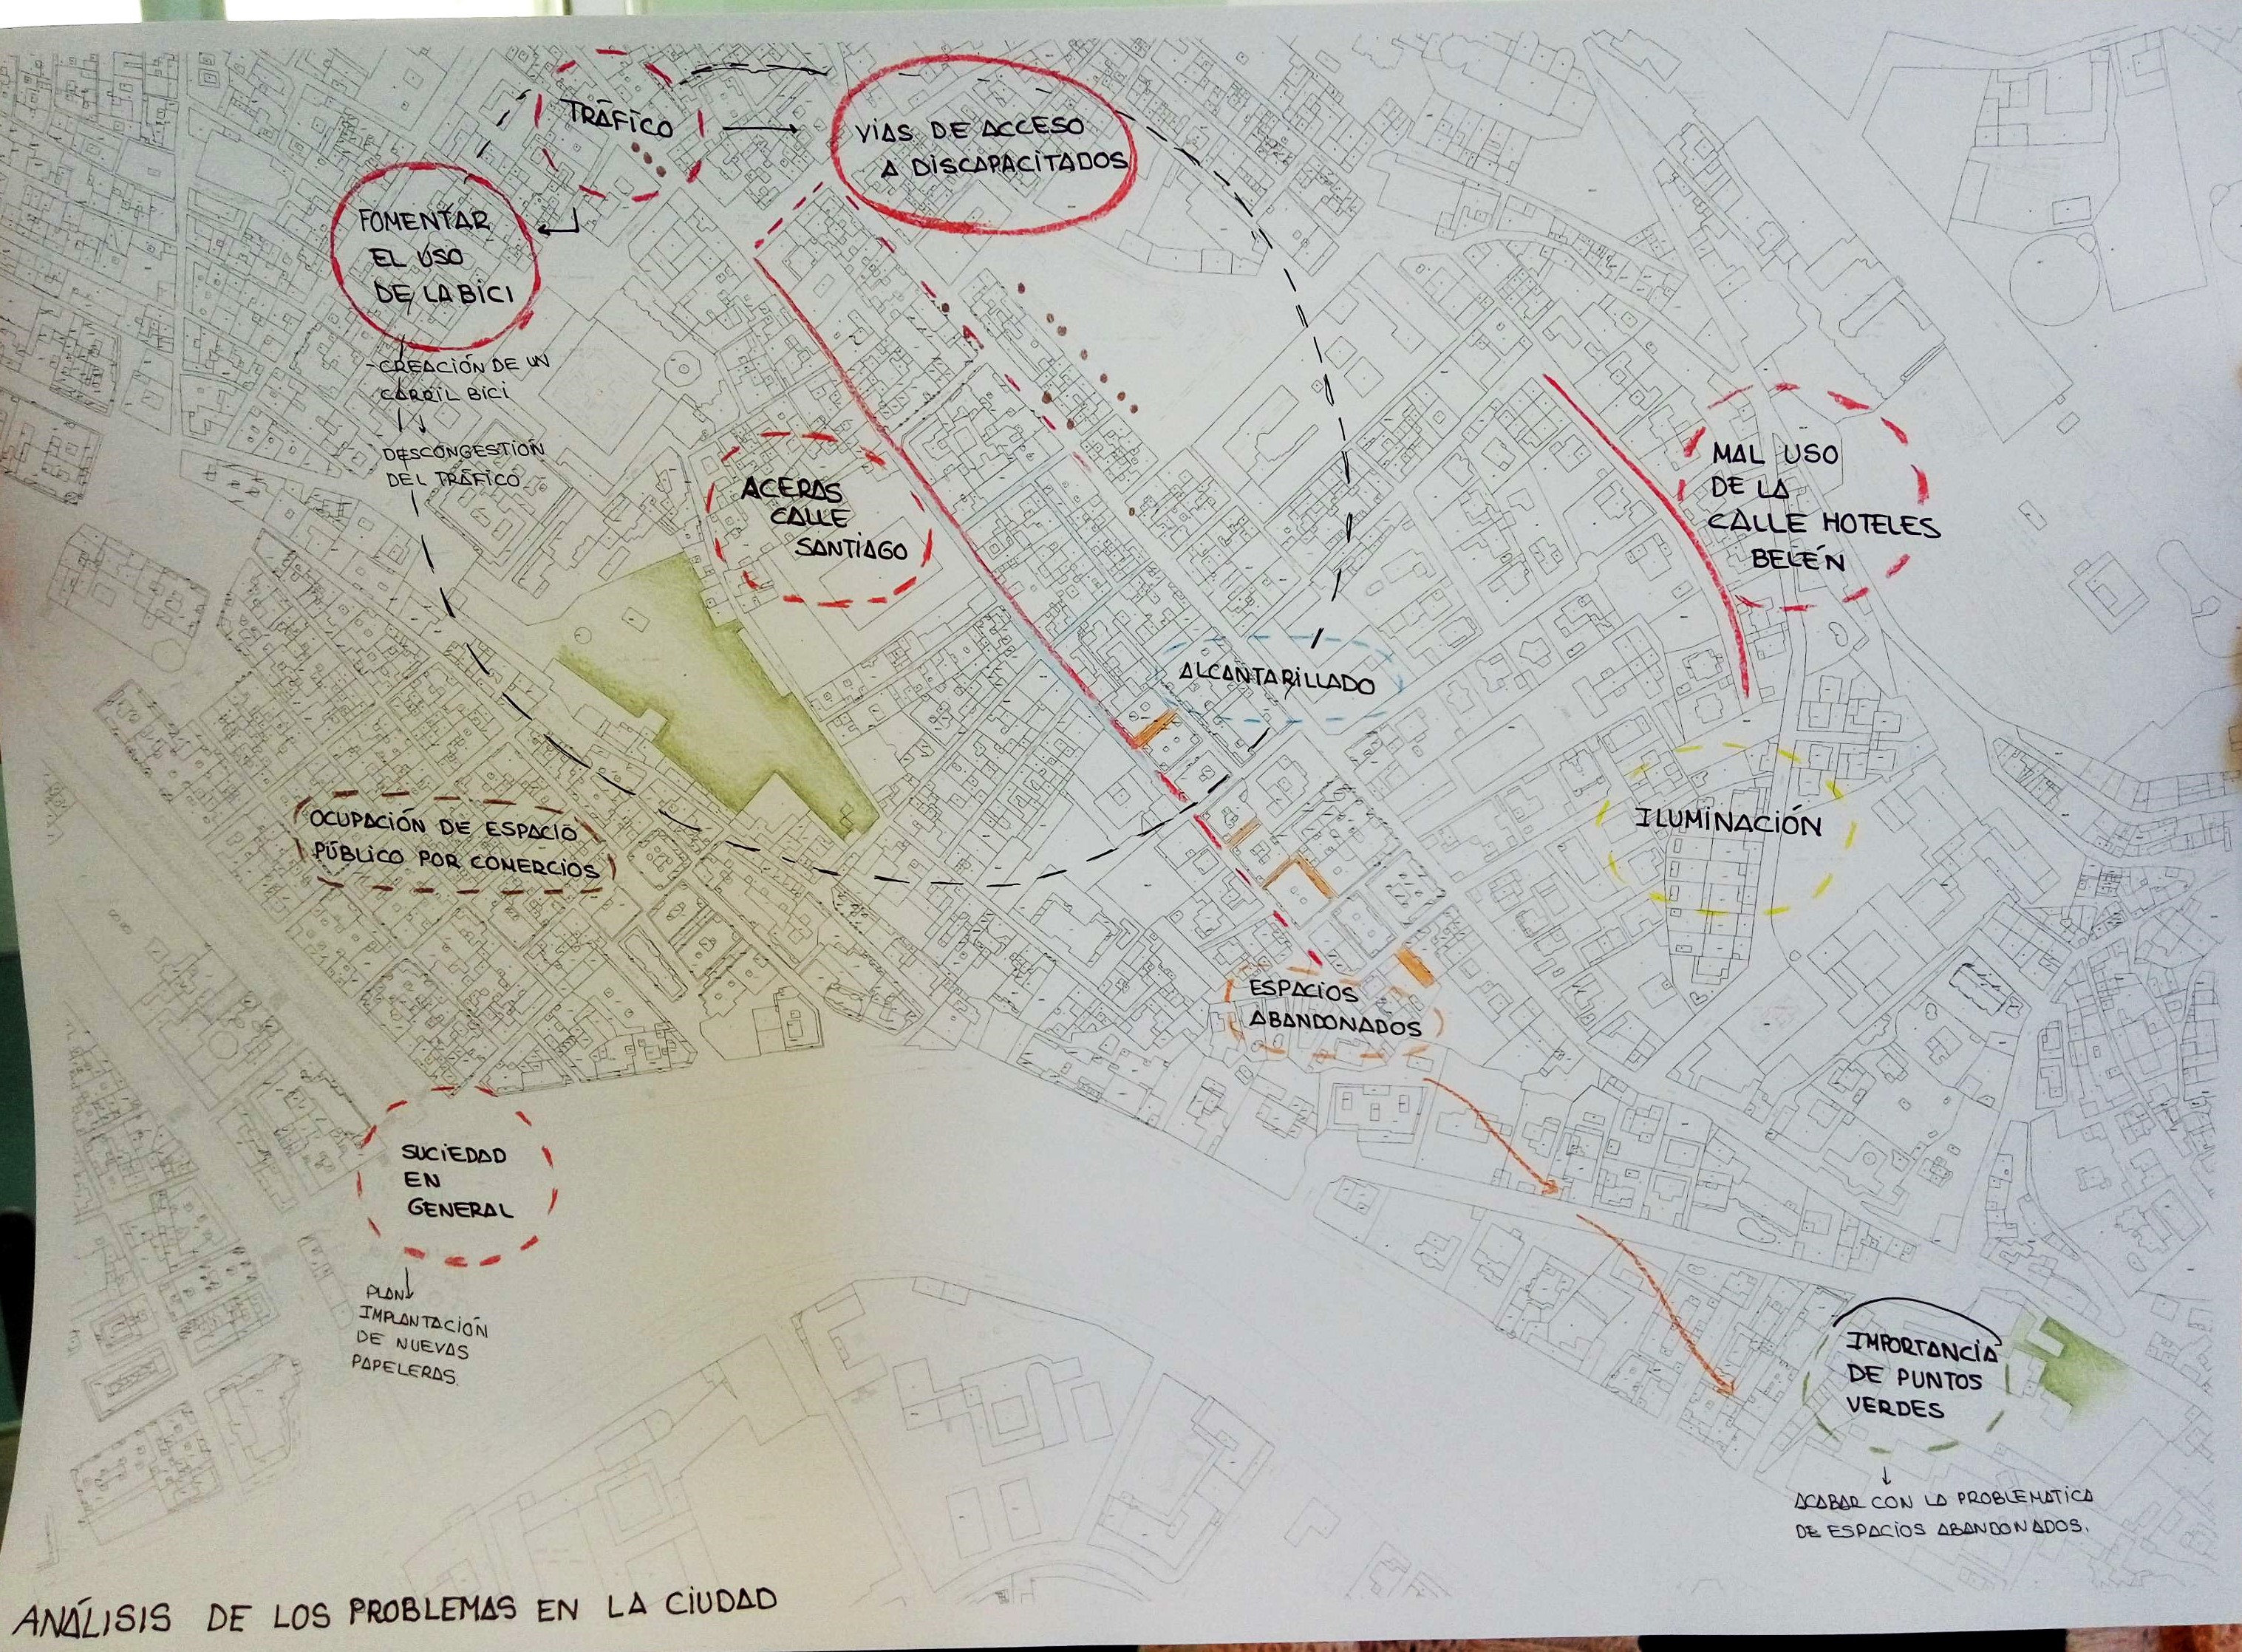 TRÁFICO
VÍAS DE ACCESO
A DISCAPACITADOS
FOMENTAR
EL USO
DE LA BICI
-CREACIÓN DE UN
CARRIL BICI
DESCONGESTIÓN
DEL TRÁFICO
ACERAS
CALLE
SANTIAGO
MAL USO
DE LA
CALLE HOTELES
BELÉN
ALCANTARILLADO
ILUMINACIÓN
OCUPACIÓN DE ESPACIO
PÚBLICO POR COMERCIOS
ESPACIOS
ABANDONADOS
SUCIEDAD
EN
GENERAL
PLAN
IMPLANTACIÓN
DE NUEVAS
PAPELERAS.
IMPORTANCIA
DE PUNTOS
VERDES
ACABAR CON LA PROBLEMATICA
DE ESPACIOS ABANDONADOS.
ANÁLISIS DE LOS PROBLEMAS EN LA CIUDAD